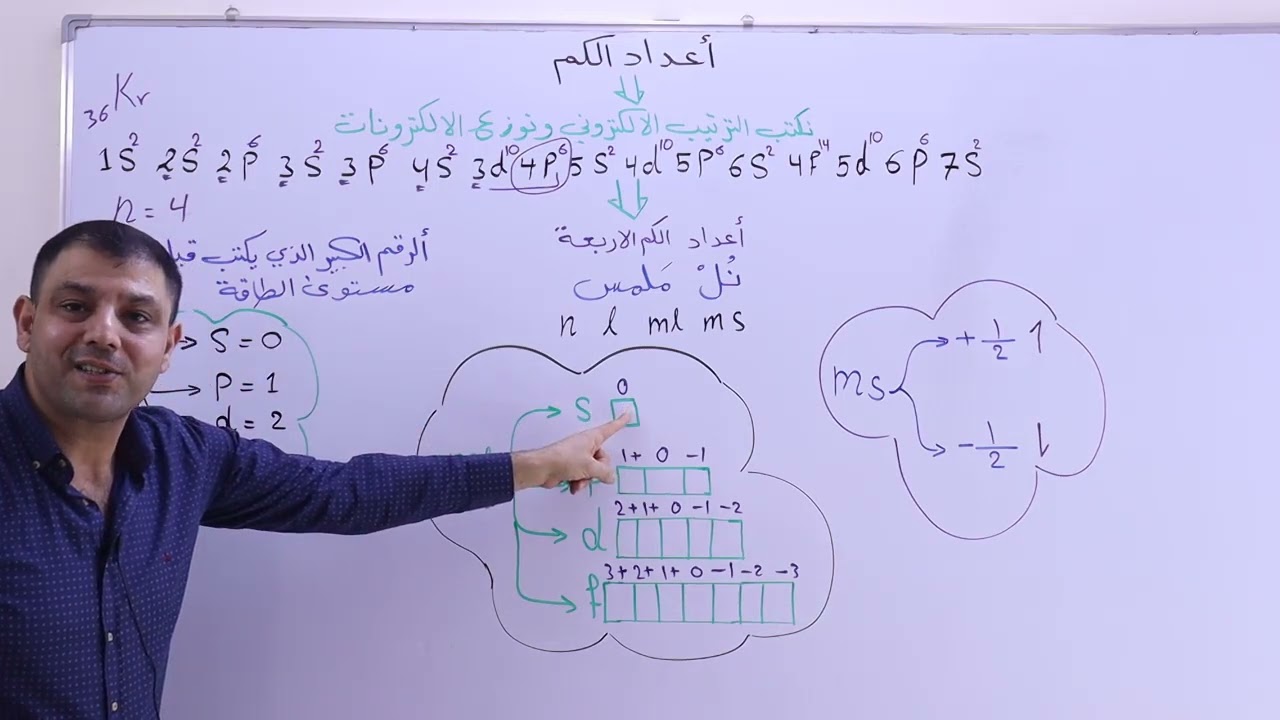 أعداد الكم
₃₆Kr
نكتب الترتيب الالكتروني ونوزع الالكترونات
1S² 2S² 2p⁶ 3S² 3p⁶ 4S² 3d¹⁰ 4P⁶ 5S² 4d¹⁰ 5P⁶ 6S² 4f¹⁴ 5d¹⁰ 6p⁶ 7S²
n = 4
ألرقم الكبير الذي يكتب
مستوى الطاقة
أعداد الكم الاربعة
نُلْ مَلمس
n l ml ms
S = 0
P = 1
d = 2
0
S
1+ 0 -1
2+ 1+ 0 -1 -2
d
3+ 2+ 1+ 0 -1 -2 -3
f
ms
+ 1/2 ↿
- 1/2 ⇂